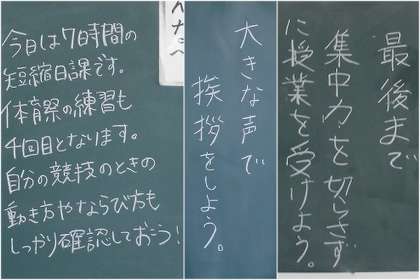 今日は7時間の
短縮日課です。
体育祭の練習も
4回目となります。
自分の競技のときの
動き方やならび方も
しっかり確認しておこう!
大きな声で
挨拶をしよう。
最後まで
集中力を切らさず
に授業を受けよう。